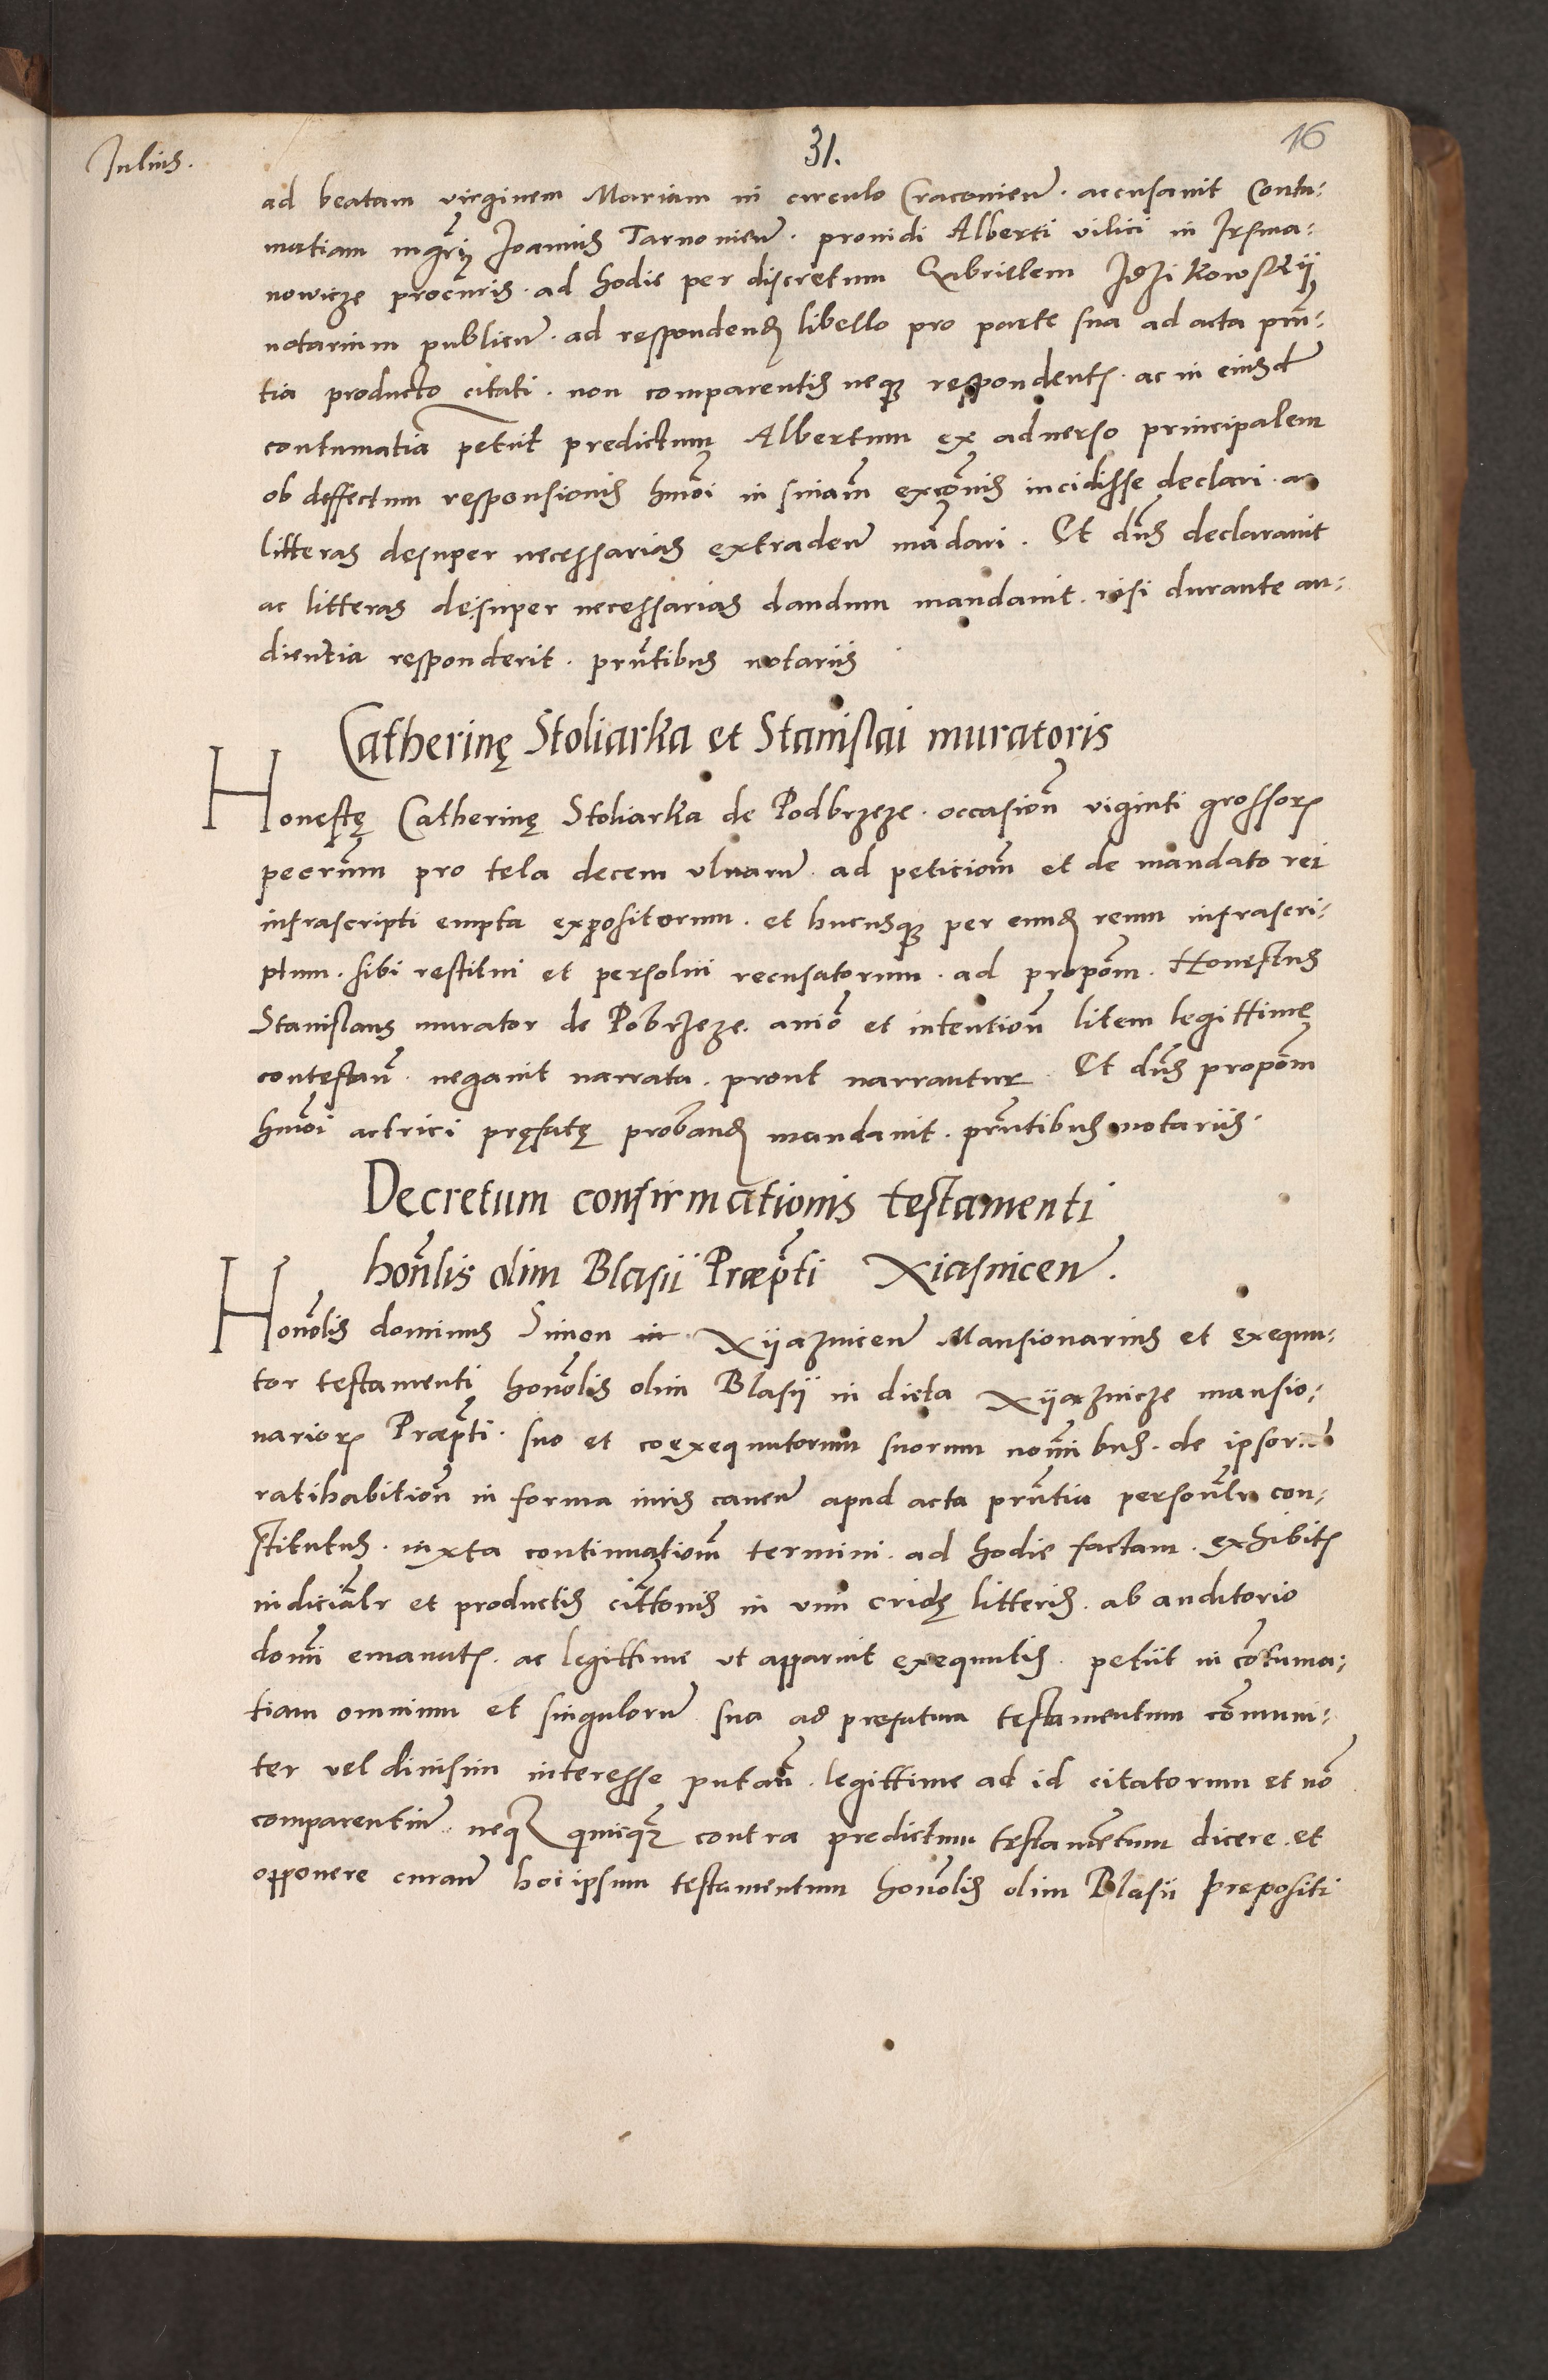 Julius.
31.
16
ad beatam virginem Mariam in circulo Cracouien̄. accusauit Contu:
matiam mgr̄i Joannis Tarnouien̄. prouidi Alberti vilici in Jrsma:
nowicze procuris. ad hodie per discretum Gabrielem Jdzikowskÿ
notarium publicum. ad respondendꝫ libello pro parte sua ad acta pn̄:
tia producto citati. non comparentis neqꝫ respondentꝭ. ac in eiusdē
contumatiā petiit predictum Albertum ex aduerso principalem
ob deffectum responsionis hmōi in sniam̄ excōnis incidisse declari. ac
litteras desuper necessarias extraden̄ mādari. Et dn̄s declarauit
ac litteras desuper necessarias dandum mandauit. nisi durante au:
dientia responderit. pn̄tibus notariis
Catherinę Stoliarka et Stanislai muratoris
Honestę Catherinę Stoliarka de Podbrzeze. occasion̄ viginti grossorꝫ
peccun̄m pro tela decem vlnarum̄. ad peticiom̄ et de mandato rei
infrascripti empta expositorum. et hucusqꝫ per eundꝫ reum infrascri:
ptum. sibi restitui et persolui recusatorum. ad propōm. Honestus
Stanislaus murator de Pobrzeze. aniō et intention̄ litem legittimę
contestan̄. negauit narrata. prout narrantur. Et dn̄s propōm
hmōi actrici pręfatę probandꝫ mandauit. pn̄tibus notariis.
Decretum confirmationis testamenti
hon̄lis olim Blasii Præpt̄i Xiasnicen̄.
Honōlis dominus Simon in Xÿaznicen̄ Mansionarius et exequu:
tor testamenti honōlis olim Blasÿ in dicta Xÿaznicze mansio:
nariorꝫ Præpt̄i. suo et coexequutorum suorum nōmibus. de ipsorum
ratihabition̄ in forma iuris cauen̄ apud acta pn̄tia personl̄r con:
stitutus. iuxta continuatiom̄ termini. ad hodie factam. exhibitꝭ
iudicial̄r et productis citt̄onis in vim cridę litteris. ab auditorio
domī emanatꝭ. ac legittime vt apparuit exequutis. petiit in cōtuma:
tiam omnium et singulorum̄ sua ad prefatum testamentum cōmuni:
ter vel diuisim interesse putan̄. legittime ad id citatorum et nō
comparentiū. neqꝫ quicqꝫ contra predictum testamētum dicere et
opponere curan̄ hoc ipsum testamentum honōlis olim Blasii Prepositi